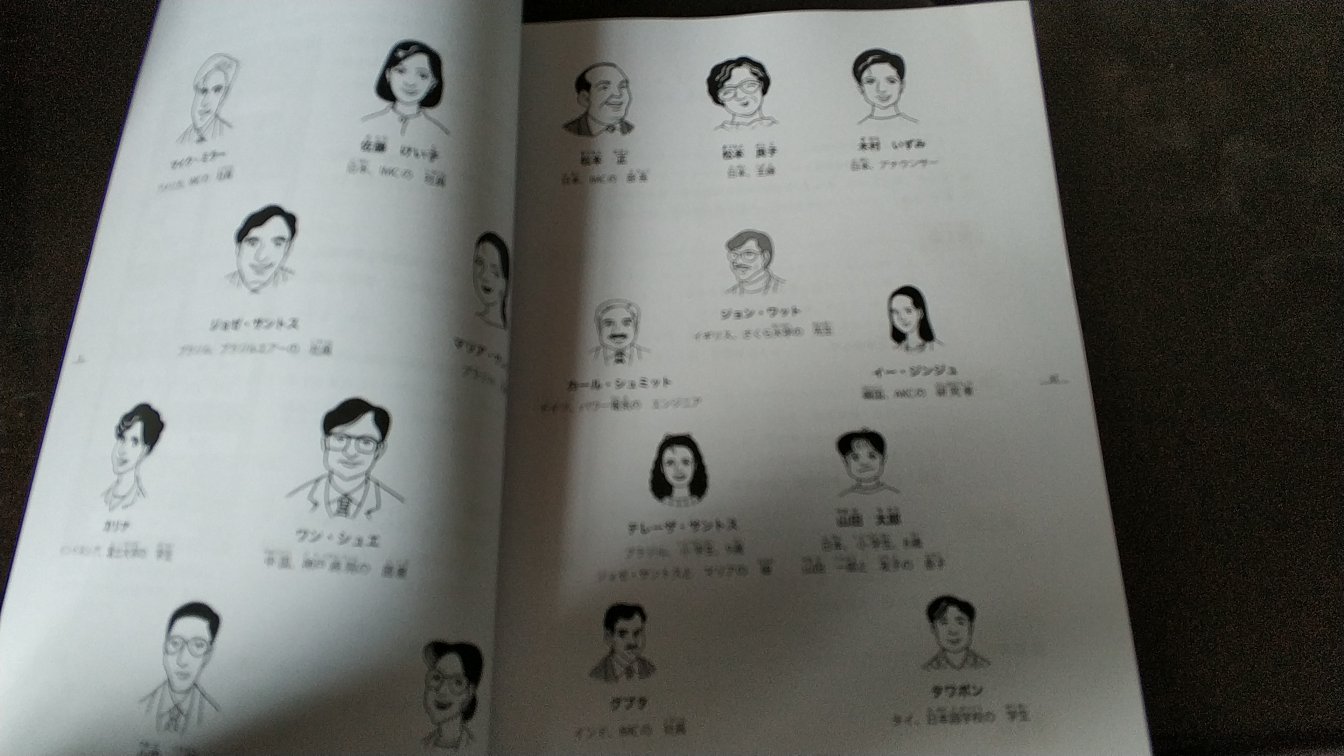 マイク・ミラー
アメリカ、IMCの 社員
佐藤 けい子
日本、IMCの 社員
ジョゼ・サントス
ブラジル、ブラジルエアーの 社員
マリア・
ブラジル
カリナ
インドネシア、富士大学の 学生
ワン・シュエ
中国、神戸病院の 医者
松本 正
日本、IMCの 部長
松本 良子
日本、主婦
木村 いずみ
日本、アナウンサー
ジョン・ワット
イギリス、さくら大学の 先生
カール・シュミット
ドイツ、パワー電気の エンジニア
イー・ジンジュ
韓国、AKCの 研究者
テレーザ・サントス
ブラジル、小学生、
ジョゼ・サントスと マリアの 娘
山田 太郎
日本、小学生、
山田 一郎と 友子の 息子
グプタ
インド、IMCの 社員
タワポン
タイ、日本語学校の 学生